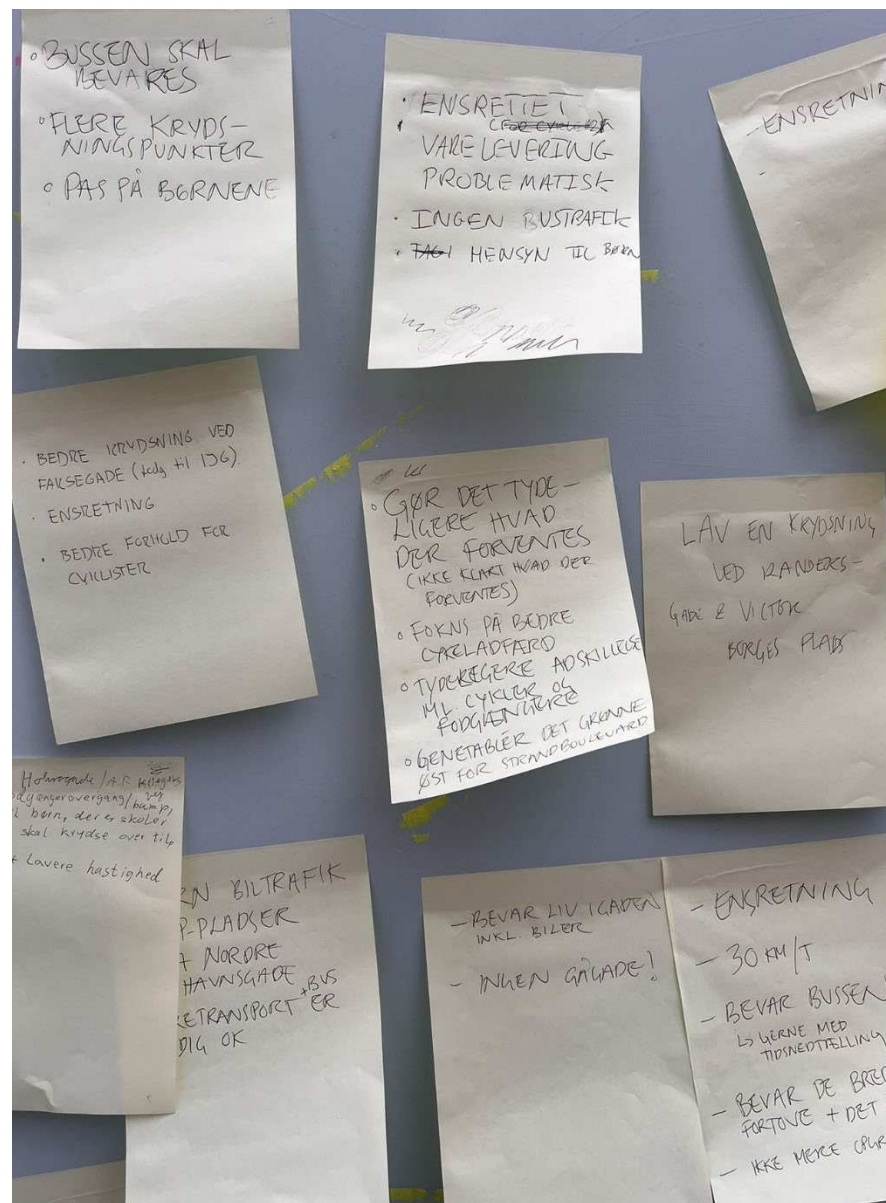 ◦ BUSSEN SKAL
BEVARES
◦ FLERE KRYDS-
NINGSPUNKTER
◦ PAS PÅ BØRNENE
· ENSRETTET
VARELEVERING
PROBLEMATISK
· INGEN BUSTRAFIK
· TAG HENSYN TIL BØRN
- ENSRETNIN
· BEDRE KRYDSNING VED
FAKSEGADE (
· ENSRETNING
· BEDRE FORHOLD FOR
CYKLISTER
◦ GØR DET TYDE-
LIGERE HVAD
DER FORVENTES
(IKKE KLART HVAD DER
FORVENTES)
◦ FOKUS PÅ BEDRE
CYKELADFÆRD
◦ TYDELIGERE ADSKILLELSE
ML CYKLER OG
FODGÆNGERE
◦ GENETABLÉR DET GRØNNE
ØST FOR STRANDBOULEVARD
LAV EN KRYDSNING
VED RANDERS-
GADE & VICTOR
BORGES PLADS
/ A.F.
dgængerovergang / bump,
l børn, der
skal krydse over til
+ Lavere hastighed
RN BILTRAFIK
P-PLADSER
NORDRE
HAVNSGADE
RETRANSPORT + BUS ER
DIG OK
- BEVAR LIV I GADEN
INKL. BILER
- INGEN GÅGADE!
- ENSRETNING
- 30 KM/T
- BEVAR BUSSEN
↳ GERNE MED
TIDSNEDTÆLLING
- BEVAR DE BRED
FORTOVE + DET
- IKKE MERE